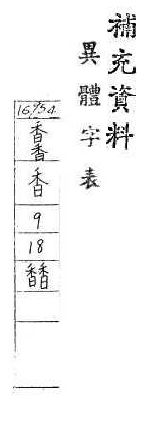 補充資料
異體字表
16954
香
香
香
9
18
香香